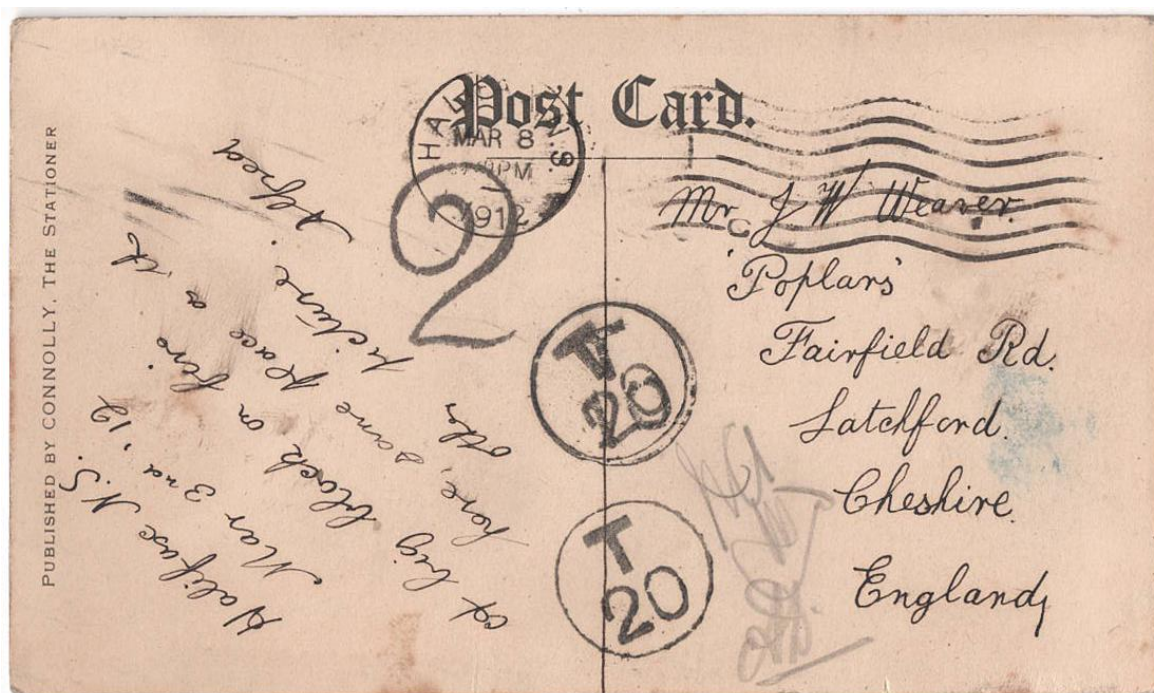 PUBLISHED BY CONNOLLY, THE STATIONER
Post Card.
MAR 8
PM
1912
2
T
20
T
20
Mr J W Weaver.
'Poplars'
Fairfield Rd.
Latchford.
Cheshire.
England,
Halifax N.S.
Mar 3rd '12
big block on fire
here, same place as
other picture
Alfred